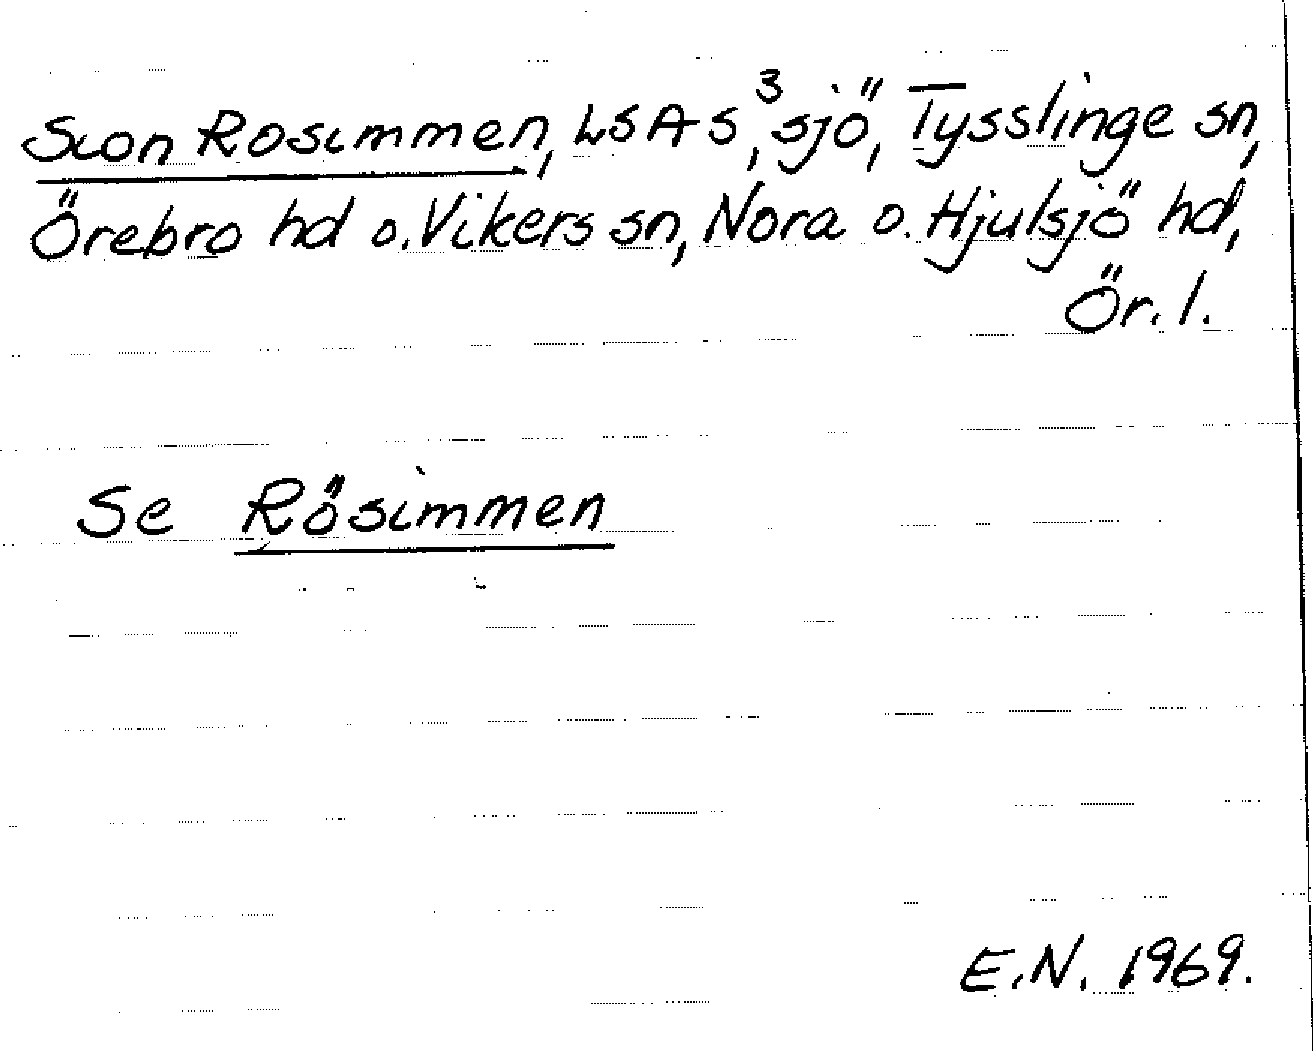 Sion Rosimmen, LSA S³, sjö, Tysslinge sn,
Örebro hd o. Vikers sn, Nora o. Hjulsjö hd,
Ör. l.
Se Rösimmen
E.N. 1969.